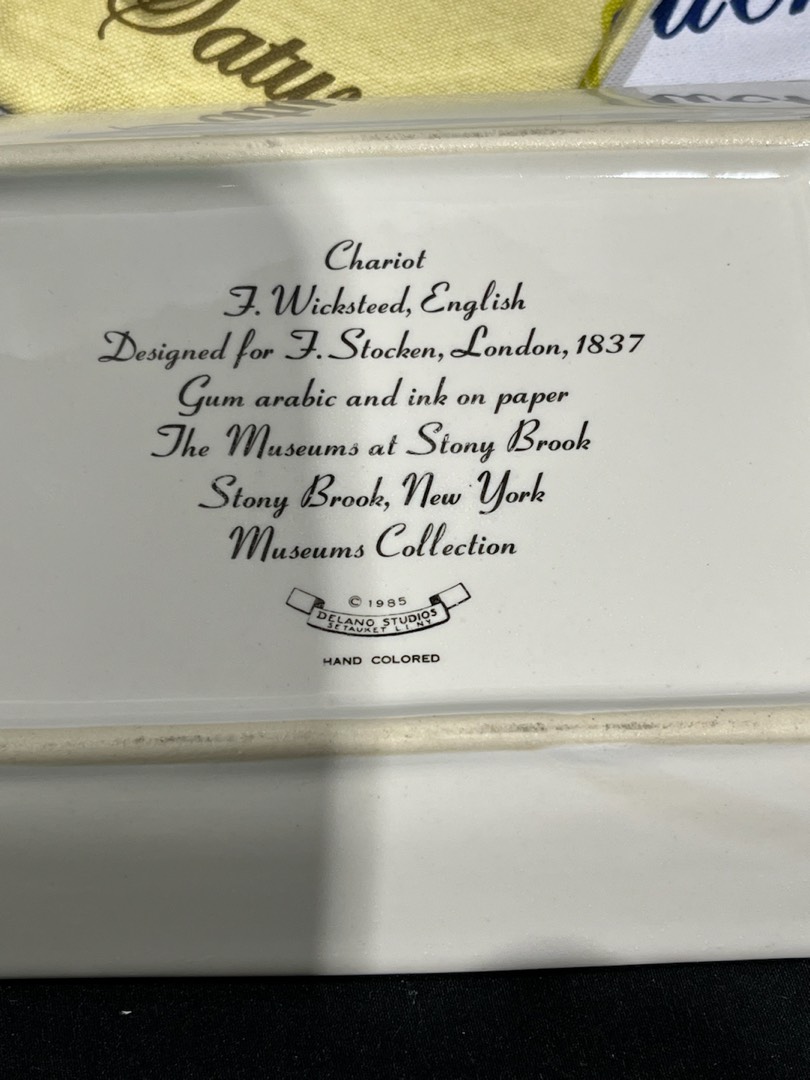 Chariot
F. Wicksteed, English
Designed for F. Stocken, London, 1837
Gum arabic and ink on paper
The Museums at Stony Brook
Stony Brook, New York
Museums Collection
© 1985
DELANO STUDIOS
SETAUKET L.I. NY
HAND COLORED